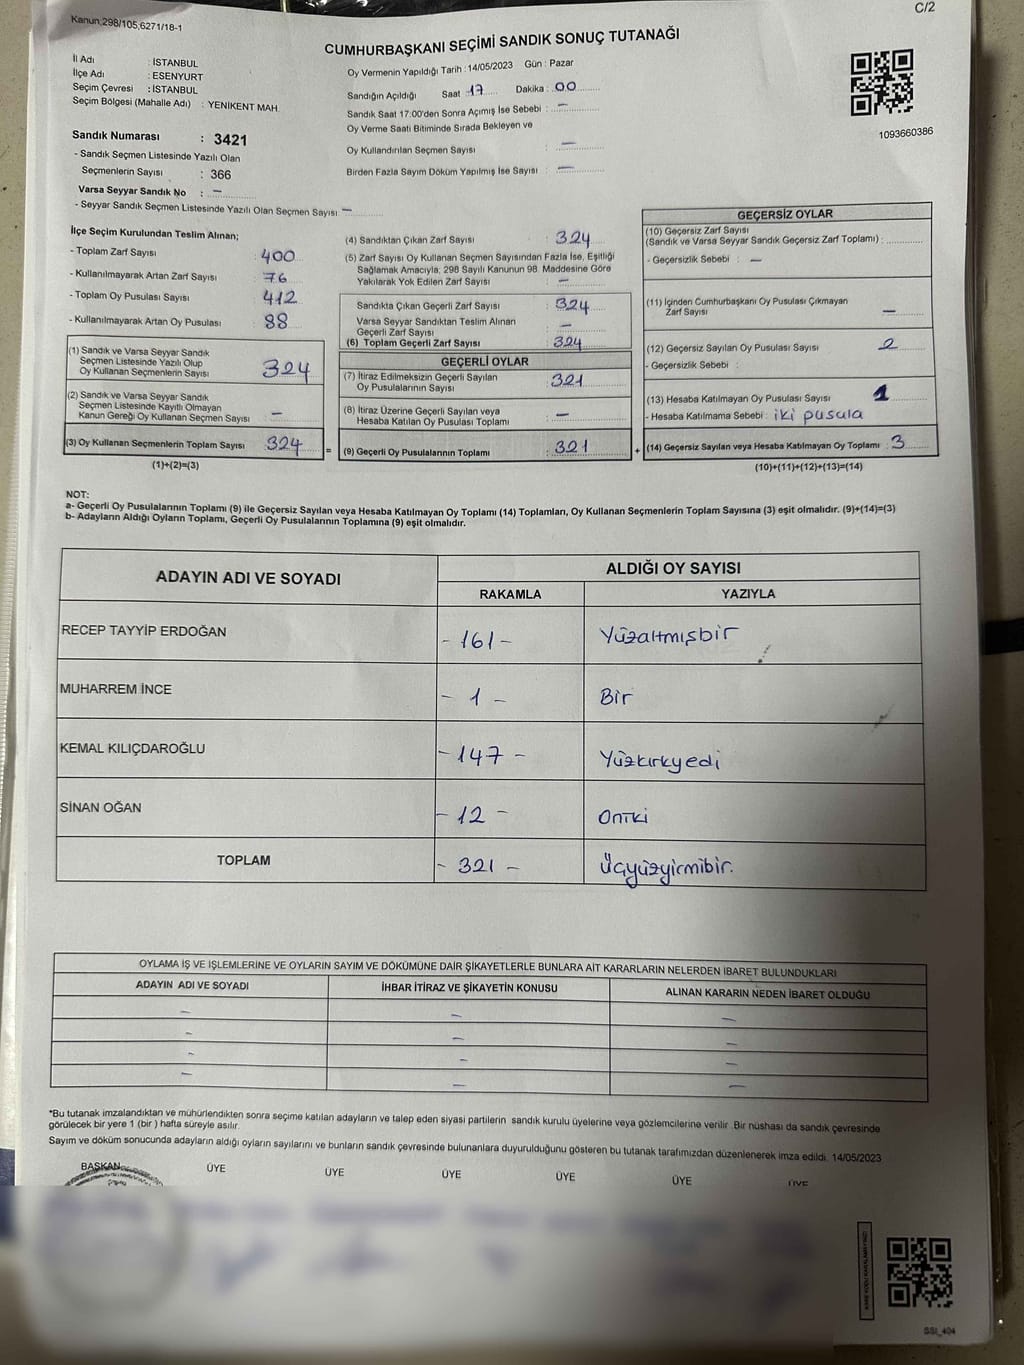 Kanun,298/105,6271/18-1
C/2
CUMHURBAŞKANI SEÇİMİ SANDIK SONUÇ TUTANAĞI
İl Adı : İSTANBUL
İlçe Adı : ESENYURT
Seçim Çevresi : İSTANBUL
Seçim Bölgesi (Mahalle Adı) : YENİKENT MAH.
Oy Vermenin Yapıldığı Tarih : 14/05/2023 Gün : Pazar
Sandığın Açıldığı Saat 17 Dakika : 00
Sandık Saat 17:00'den Sonra Açımış İse Sebebi : —
Oy Verme Saati Bitiminde Sırada Bekleyen ve
Oy Kullandırılan Seçmen Sayısı : —
Birden Fazla Sayım Döküm Yapılmış İse Sayısı : —
1093660386
Sandık Numarası : 3421
- Sandık Seçmen Listesinde Yazılı Olan
Seçmenlerin Sayısı : 366
Varsa Seyyar Sandık No : —
- Seyyar Sandık Seçmen Listesinde Yazılı Olan Seçmen Sayısı : —
İlçe Seçim Kurulundan Teslim Alınan;
- Toplam Zarf Sayısı : 400
- Kullanılmayarak Artan Zarf Sayısı : 76
- Toplam Oy Pusulası Sayısı : 412
- Kullanılmayarak Artan Oy Pusulası : 88
(1) Sandık ve Varsa Seyyar Sandık
Seçmen Listesinde Yazılı Olup
Oy Kullanan Seçmenlerin Sayısı : 324
(2) Sandık ve Varsa Seyyar Sandık
Seçmen Listesinde Kayıtlı Olmayan
Kanun Gereği Oy Kullanan Seçmen Sayısı : —
(3) Oy Kullanan Seçmenlerin Toplam Sayısı : 324
(1)+(2)=(3)
(4) Sandıktan Çıkan Zarf Sayısı : 324
(5) Zarf Sayısı Oy Kullanan Seçmen Sayısından Fazla İse, Eşitliği
Sağlamak Amacıyla, 298 Sayılı Kanunun 98. Maddesine Göre
Yakılarak Yok Edilen Zarf Sayısı : —
Sandıkta Çıkan Geçerli Zarf Sayısı : 324
Varsa Seyyar Sandıktan Teslim Alınan
Geçerli Zarf Sayısı : —
(6) Toplam Geçerli Zarf Sayısı : 324
GEÇERLİ OYLAR
(7) İtiraz Edilmeksizin Geçerli Sayılan
Oy Pusulalarının Sayısı : 321
(8) İtiraz Üzerine Geçerli Sayılan veya
Hesaba Katılan Oy Pusulası Toplamı : —
= (9) Geçerli Oy Pusulalarının Toplamı : 321 +
GEÇERSİZ OYLAR
(10) Geçersiz Zarf Sayısı
(Sandık ve Varsa Seyyar Sandık Geçersiz Zarf Toplamı) :
- Geçersizlik Sebebi : —
(11) İçinden Cumhurbaşkanı Oy Pusulası Çıkmayan
Zarf Sayısı : —
(12) Geçersiz Sayılan Oy Pusulası Sayısı : 2
- Geçersizlik Sebebi :
(13) Hesaba Katılmayan Oy Pusulası Sayısı : 1
- Hesaba Katılmama Sebebi : iki pusula
(14) Geçersiz Sayılan veya Hesaba Katılmayan Oy Toplamı : 3
(10)+(11)+(12)+(13)=(14)
NOT:
a- Geçerli Oy Pusulalarının Toplamı (9) ile Geçersiz Sayılan veya Hesaba Katılmayan Oy Toplamı (14) Toplamları, Oy Kullanan Seçmenlerin Toplam Sayısına (3) eşit olmalıdır. (9)+(14)=(3)
b- Adayların Aldığı Oyların Toplamı, Geçerli Oy Pusulalarının Toplamına (9) eşit olmalıdır.
ADAYIN ADI VE SOYADI ALDIĞI OY SAYISI
RAKAMLA YAZIYLA
RECEP TAYYİP ERDOĞAN - 161 - Yüzaltmışbir
MUHARREM İNCE - 1 - Bir
KEMAL KILIÇDAROĞLU - 147 - Yüzkırkyedi
SİNAN OĞAN - 12 - Oniki
TOPLAM - 321 - Üçyüzyirmibir.
OYLAMA İŞ VE İŞLEMLERİNE VE OYLARIN SAYIM VE DÖKÜMÜNE DAİR ŞİKAYETLERLE BUNLARA AİT KARARLARIN NELERDEN İBARET BULUNDUKLARI
ADAYIN ADI VE SOYADI İHBAR İTİRAZ VE ŞİKAYETİN KONUSU ALINAN KARARIN NEDEN İBARET OLDUĞU
— — —
— — —
— — —
— — —
*Bu tutanak imzalandıktan ve mühürlendikten sonra seçime katılan adayların ve talep eden siyasi partilerin sandık kurulu üyelerine veya gözlemcilerine verilir .Bir nüshası da sandık çevresinde
görülecek bir yere 1 (bir ) hafta süreyle asılır.
Sayım ve döküm sonucunda adayların aldığı oyların sayılarını ve bunların sandık çevresinde bulunanlara duyurulduğunu gösteren bu tutanak tarafımızdan düzenlenerek imza edildi. 14/05/2023
BAŞKAN ÜYE ÜYE ÜYE ÜYE ÜYE ÜYE
SSI_404